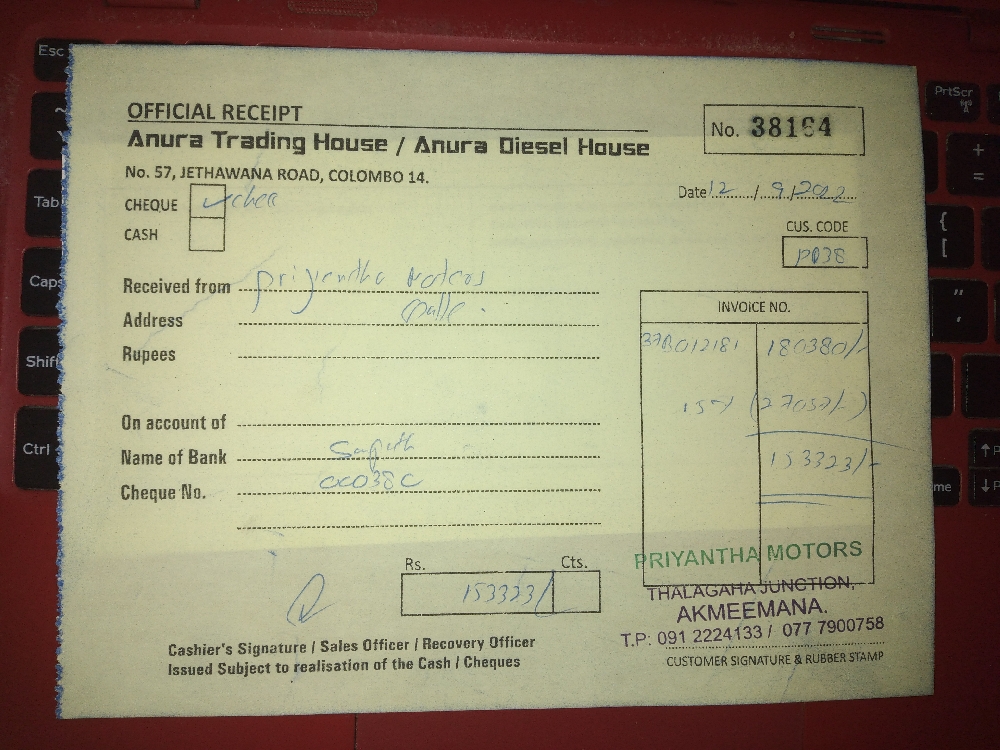 OFFICIAL RECEIPT
Anura Trading House / Anura Diesel House
No. 38164
No. 57, JETHAWANA ROAD, COLOMBO 14.
Date 12 / 9 / 2022
CHEQUE
CASH
CUS. CODE
P038
Received from Priyantha Motors
Address Galle.
Rupees
INVOICE NO.
37B012181 180380/-
15% (27057/-)
153323/-
On account of
Name of Bank Sampath
Cheque No.
Rs. Cts.
153323/
PRIYANTHA MOTORS
THALAGAHA JUNCTION,
AKMEEMANA.
T.P: 091 2224133 / 077 7900758
CUSTOMER SIGNATURE & RUBBER STAMP
Cashier's Signature / Sales Officer / Recovery Officer
Issued Subject to realisation of the Cash / Cheques
Esc
Tab
Caps
Shift
Ctrl
PrtScr